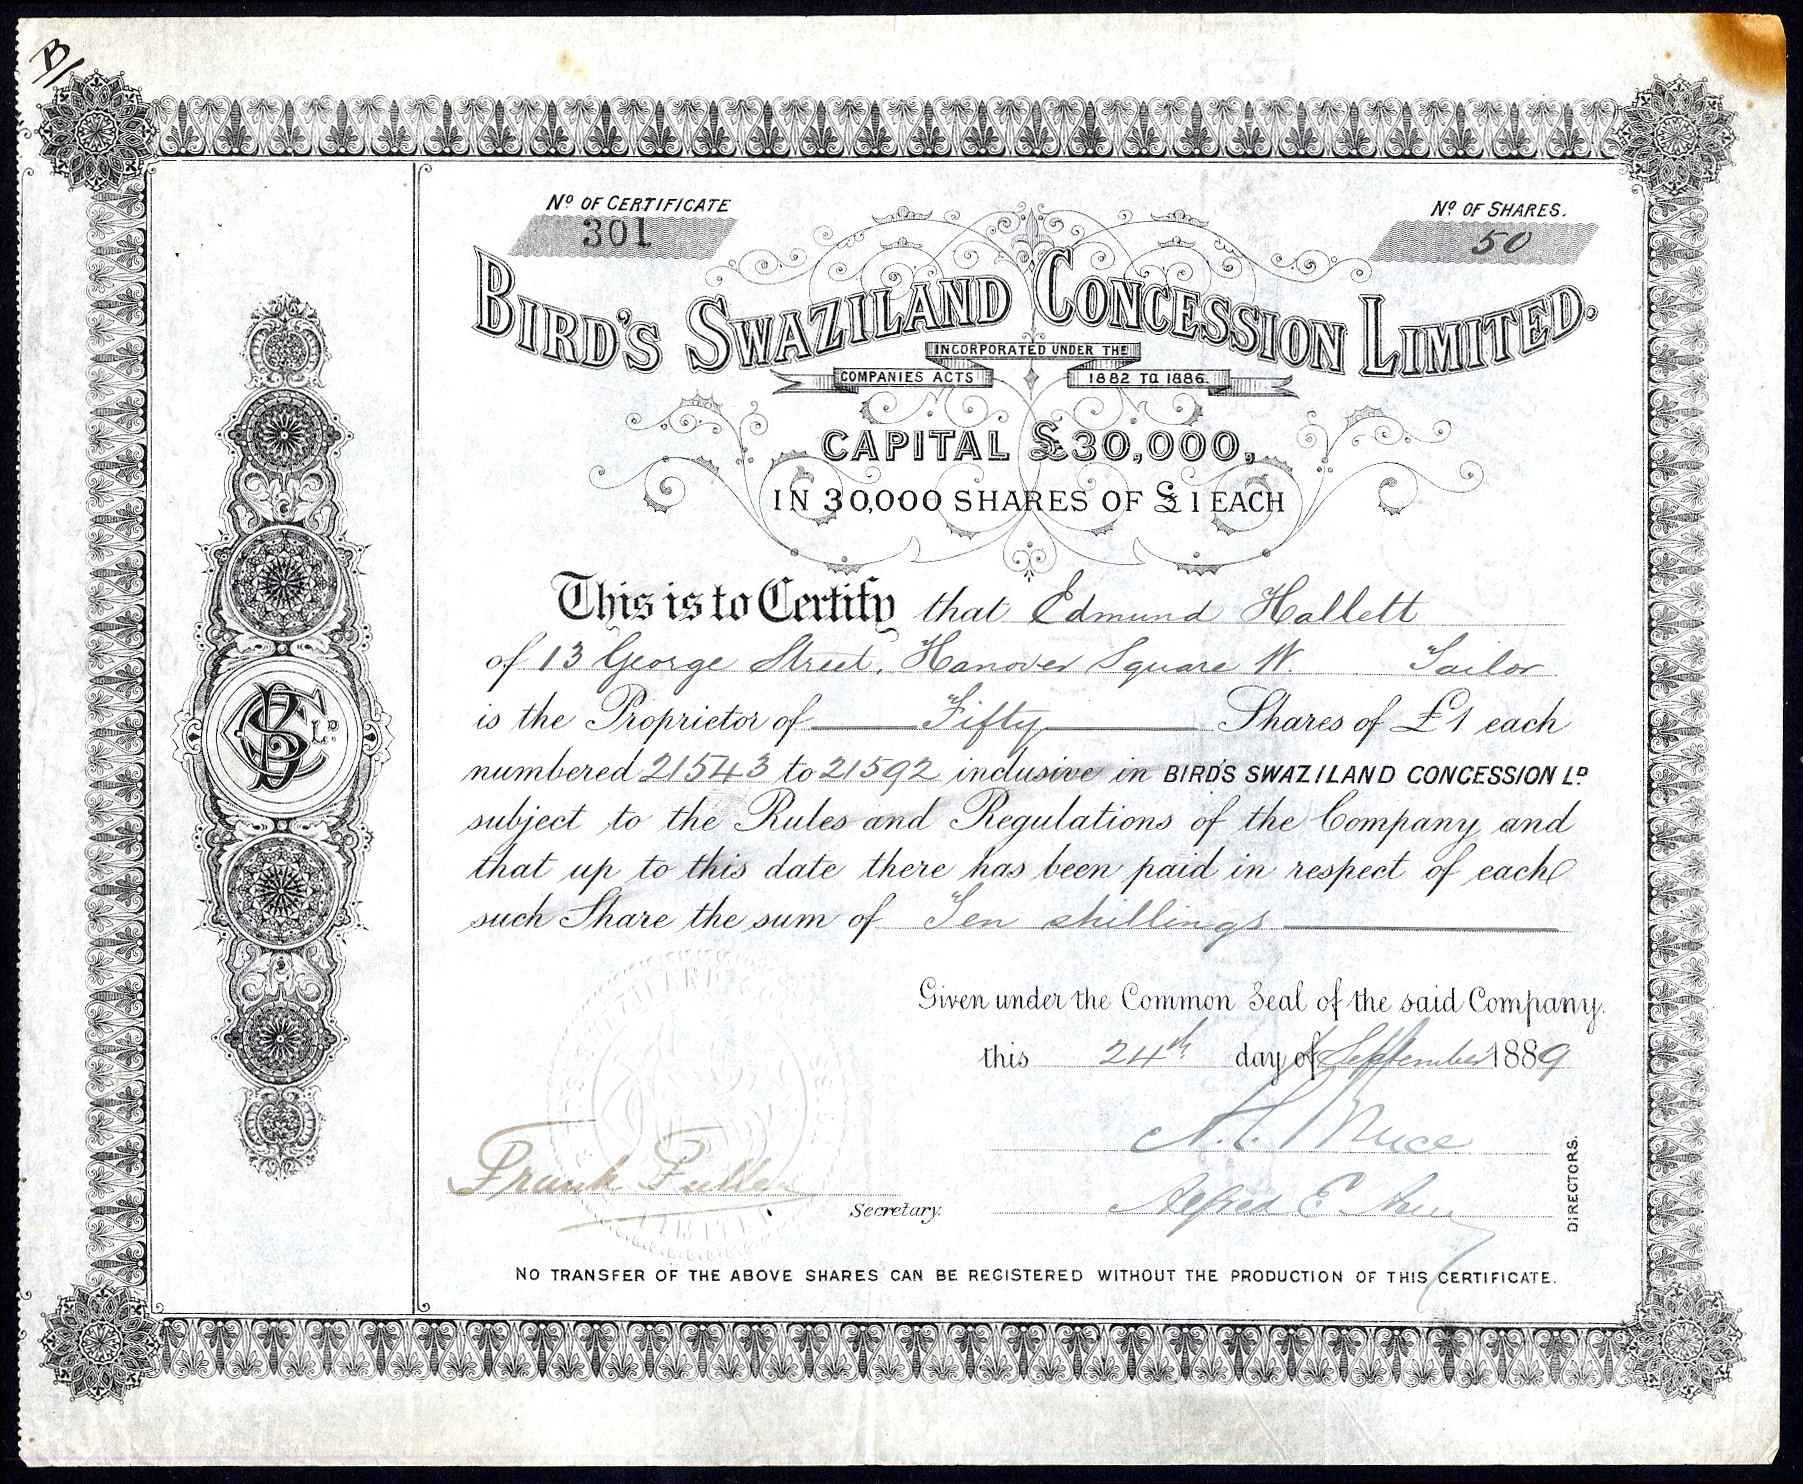 B/
No OF CERTIFICATE
301
No OF SHARES.
50
BIRD'S SWAZILAND CONCESSION LIMITED.
INCORPORATED UNDER THE
COMPANIES ACTS 1882 TO 1886.
CAPITAL £30,000,
IN 30,000 SHARES OF £1 EACH
This is to Certify that Edmund Hallett
of 13 George Street, Hanover Square W. Tailor
is the Proprietor of Fifty Shares of £1 each
numbered 21543 to 21592 inclusive in BIRD'S SWAZILAND CONCESSION LD.
subject to the Rules and Regulations of the Company, and
that up to this date there has been paid in respect of each
such Share the sum of Ten shillings
BSC LD.
Given under the Common Seal of the said Company.
this 24th day of September 1889
Frank Fuller
Secretary.
Alfred E.
DIRECTORS.
NO TRANSFER OF THE ABOVE SHARES CAN BE REGISTERED WITHOUT THE PRODUCTION OF THIS CERTIFICATE.